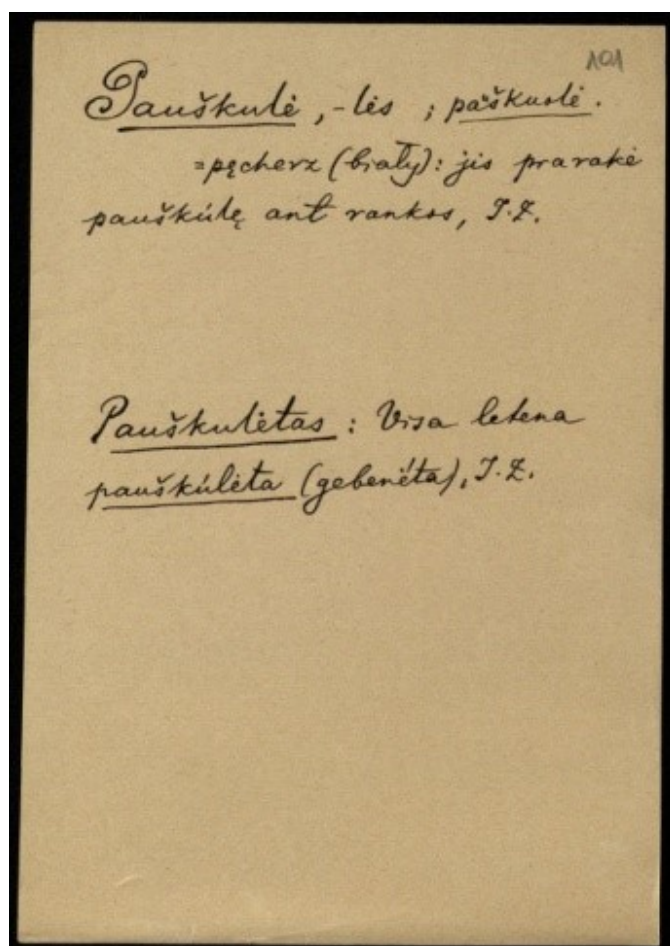 101
Pauškulė, -lės ; paškuolė.
=pęcherz (biały): jis prarakė
pauškúlę ant rankos, J.Z.
Pauškulėtas : Visa letena
pauškúlėta (gebenėta), J.Z.